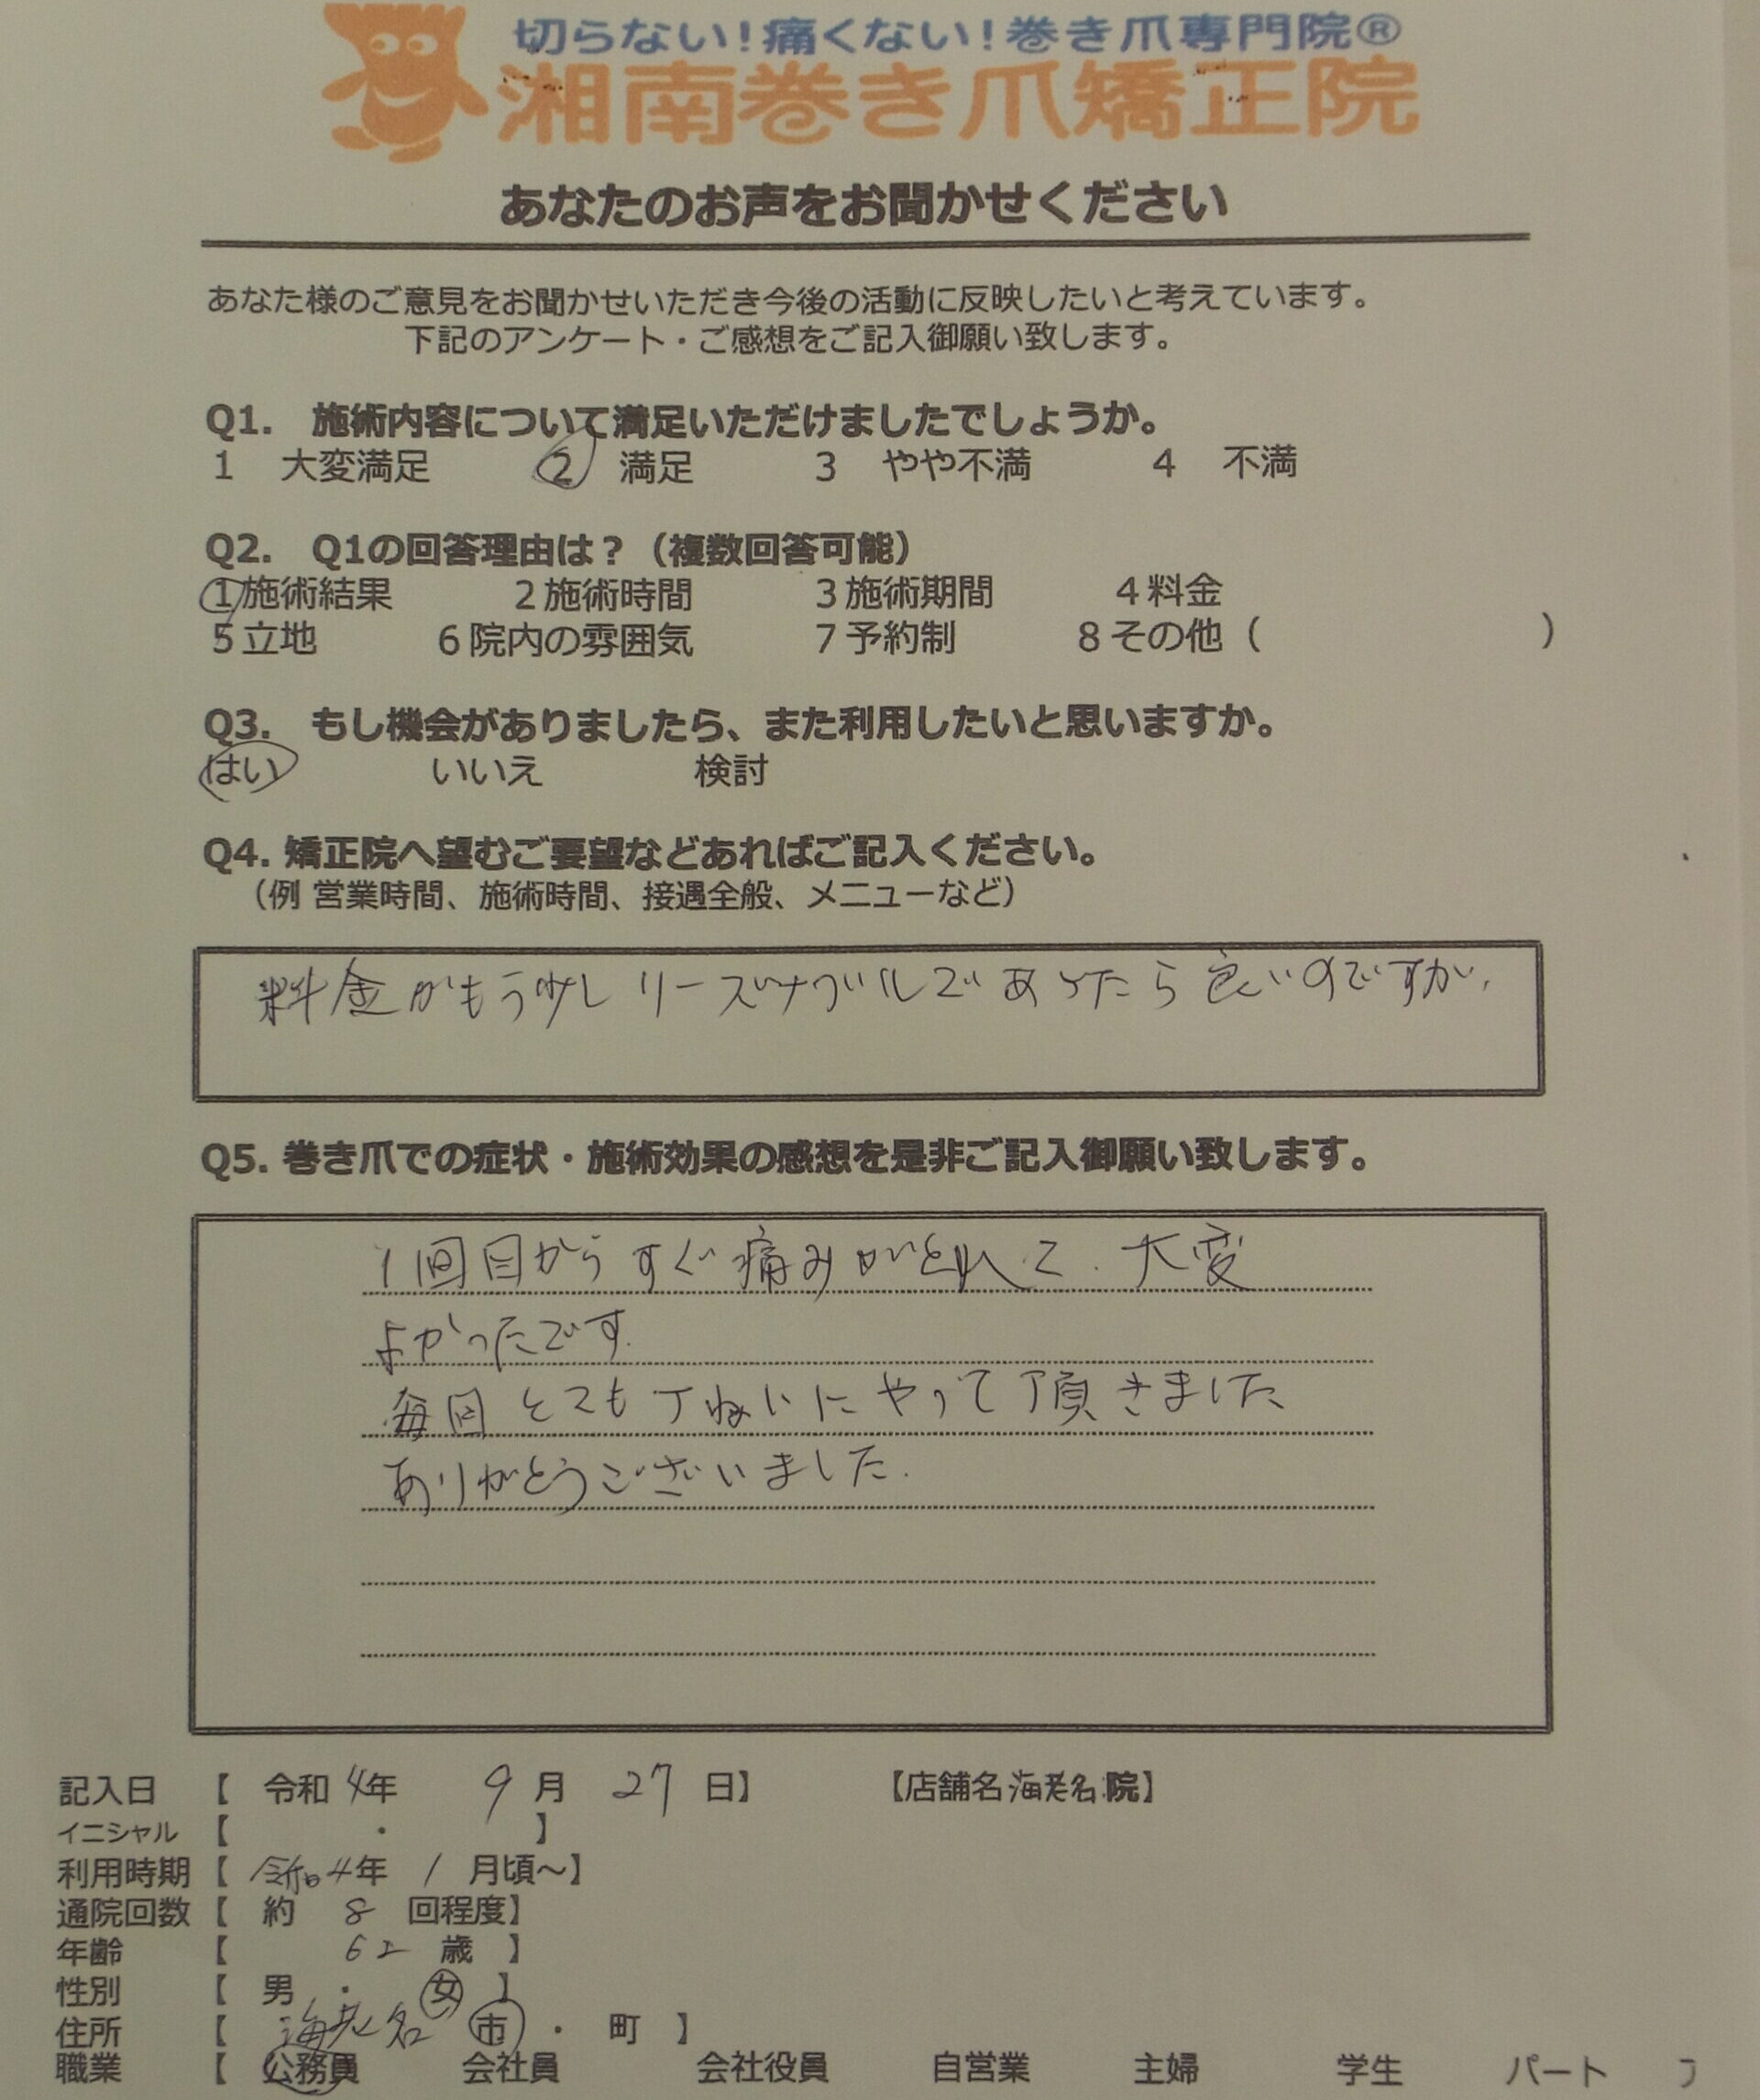 切らない!痛くない!巻き爪専門院®
湘南巻き爪矯正院
あなたのお声をお聞かせください
あなた様のご意見をお聞かせいただき今後の活動に反映したいと考えています。
下記のアンケート・ご感想をご記入御願い致します。
Q1. 施術内容について満足いただけましたでしょうか。
1 大変満足 2 満足 3 やや不満 4 不満
Q2. Q1の回答理由は?(複数回答可能)
1施術結果 2施術時間 3施術期間 4料金
5立地 6院内の雰囲気 7予約制 8その他( )
Q3. もし機会がありましたら、また利用したいと思いますか。
はい いいえ 検討
Q4. 矯正院へ望むご要望などあればご記入ください。
(例 営業時間、施術時間、接遇全般、メニューなど)
料金がもう少しリーズナブルであったら良いのですが、
Q5. 巻き爪での症状・施術効果の感想を是非ご記入御願い致します。
1回目からすぐ痛みがとれて、大変
よかったです。
毎回とても丁ねいにやって頂きました
ありがとうございました。
記入日 【 令和4年 9月 27日】 【店舗名 海老名 院】
イニシャル 【 ・ 】
利用時期 【 令和4年 1月頃~】
通院回数 【 約 8 回程度】
年齢 【 62 歳 】
性別 【 男 ・ 女 】
住所 【 海老名 市 ・ 町 】
職業 【 公務員 会社員 会社役員 自営業 主婦 学生 パート